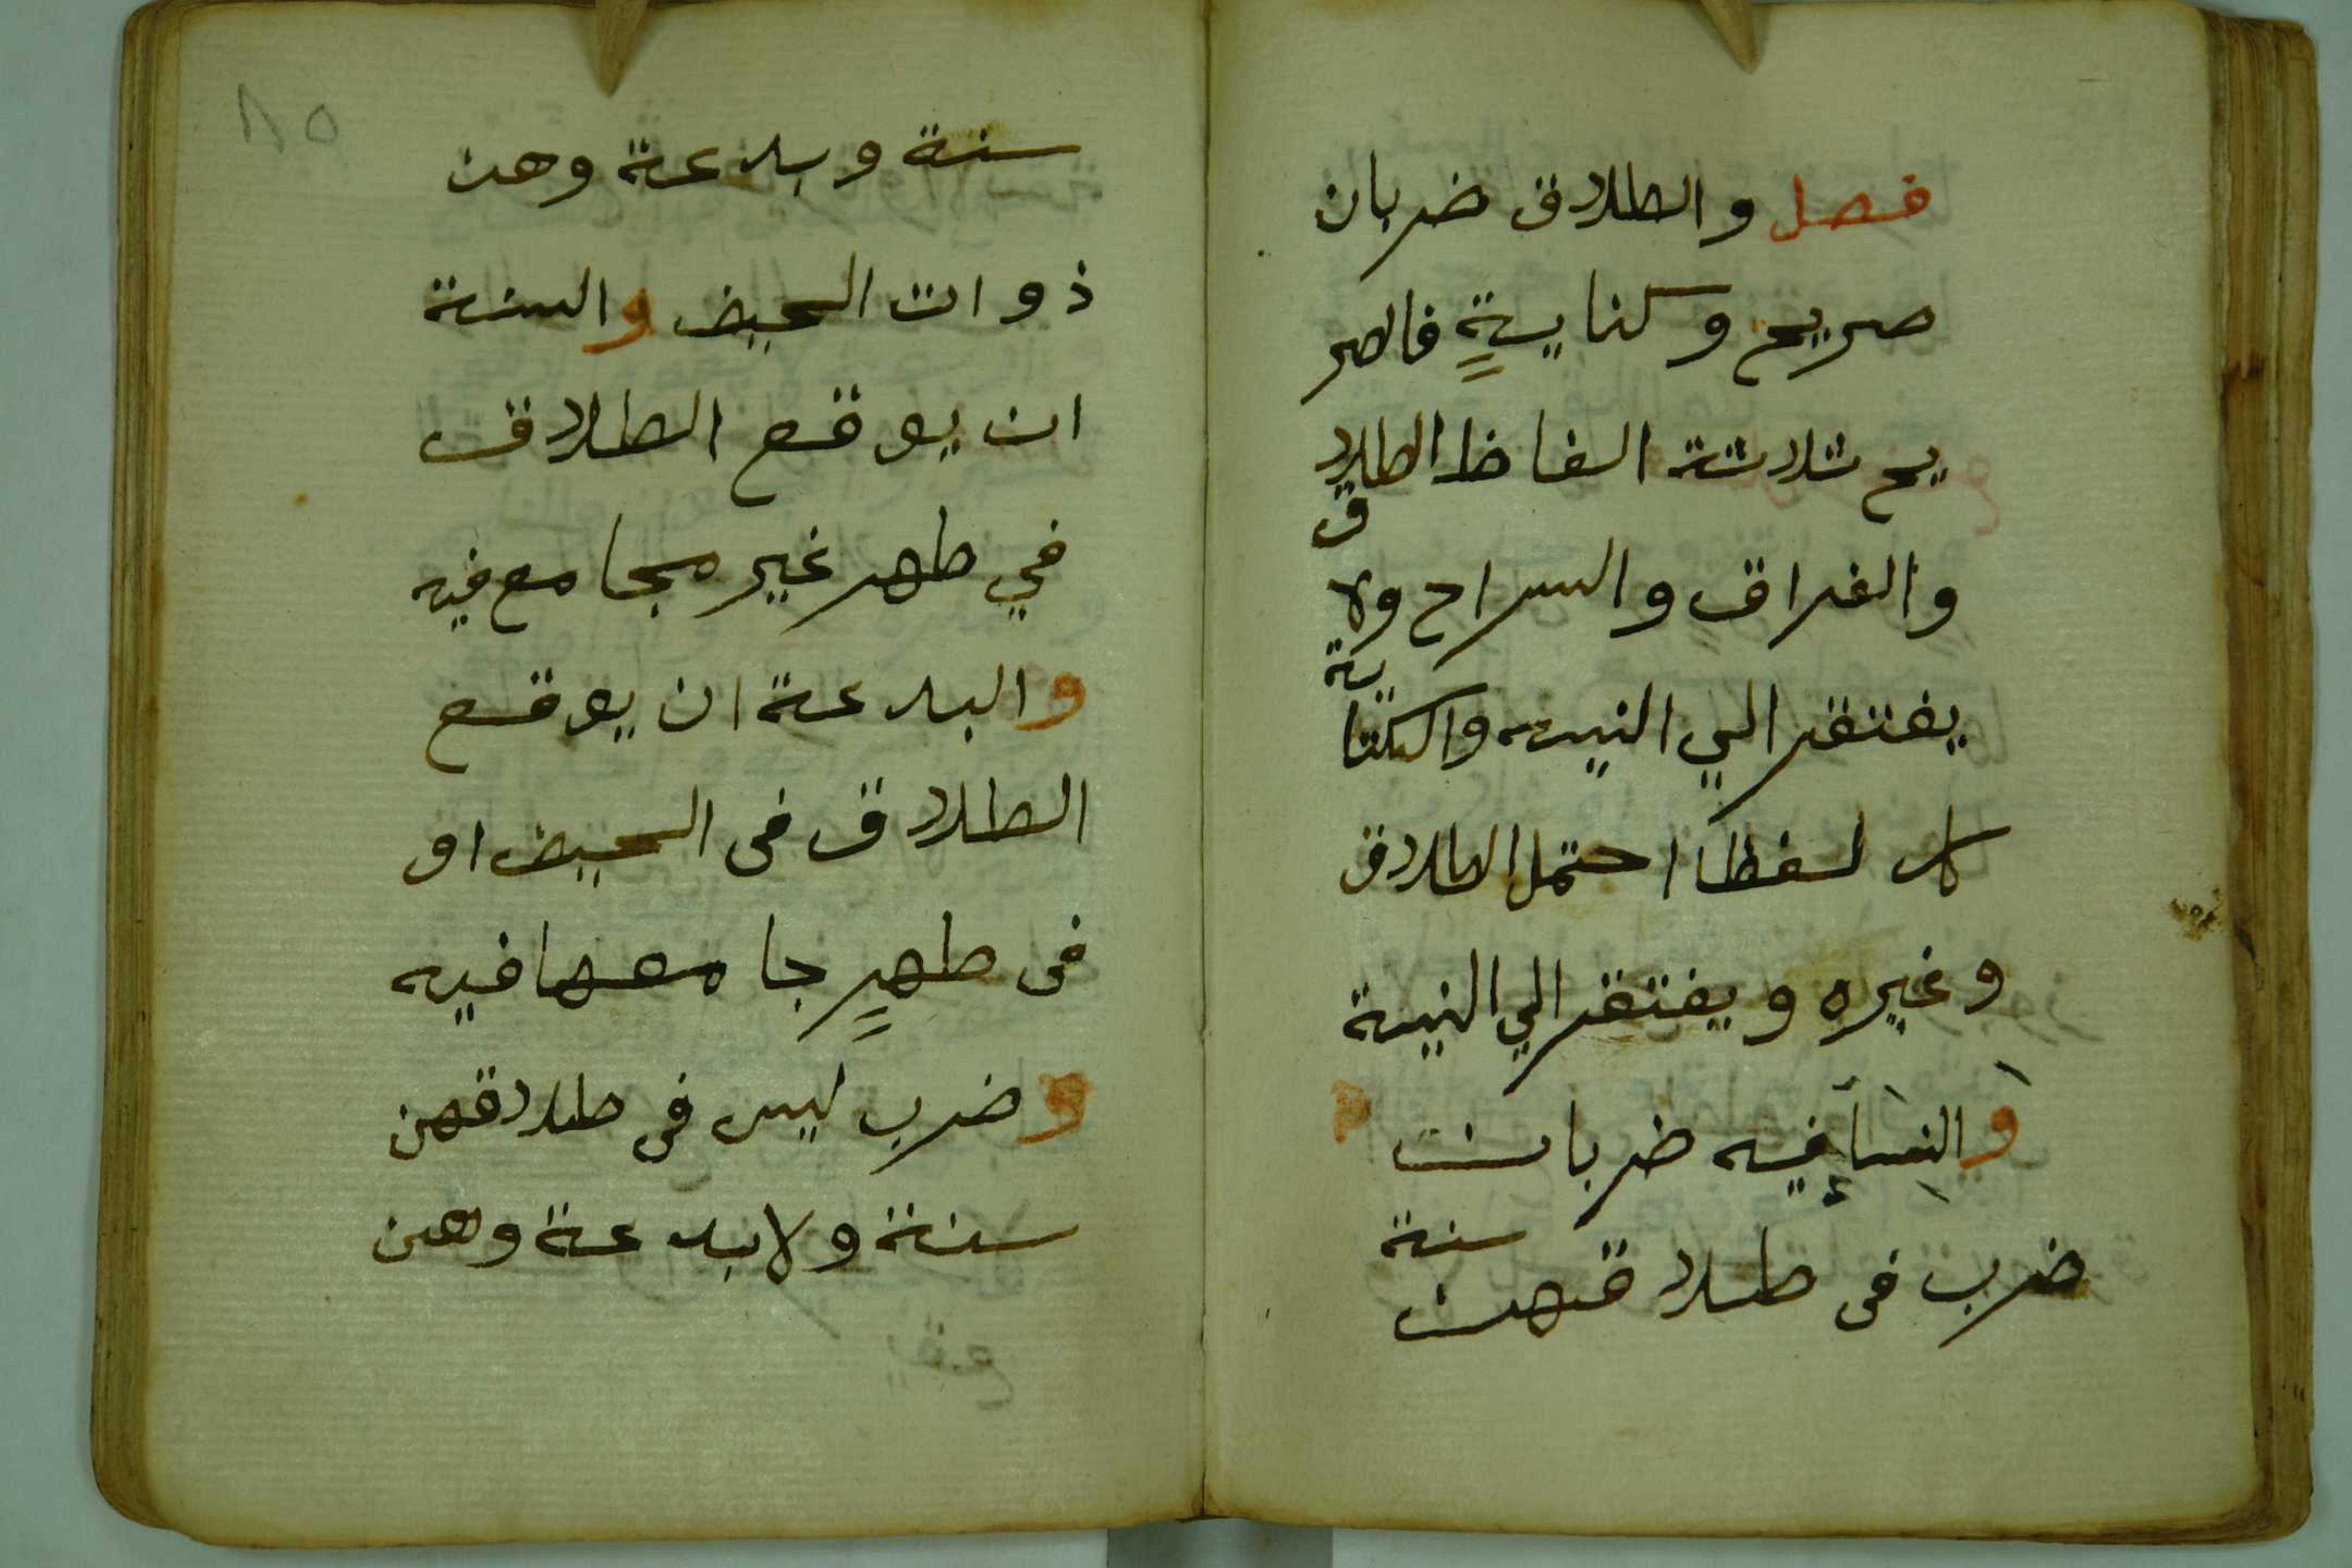 فصل والطلاق ضربان
صريح وكنايةٍ فالصر
يح ثلاثة الفاظ الطلاق
والفراق والسراح ولا
يفتقر الي النيه والكناية
كل لفظ احتمل الطلاق
وغيره ويفتقر الي النية
والنِسَآءِ فيه ضربان
ضرب في طلاقهن سنة
٨٥
سنة وبدعة وهن
ذوات الحيض والسنة
ان يوقع الطلاق
في طهر غير مجامع فيه
والبدعة ان يوقع
الطلاق في الحيض او
في طهرٍ جامعها فيه
وضرب ليس في طلاقهن
سنة ولا بدعة وهن